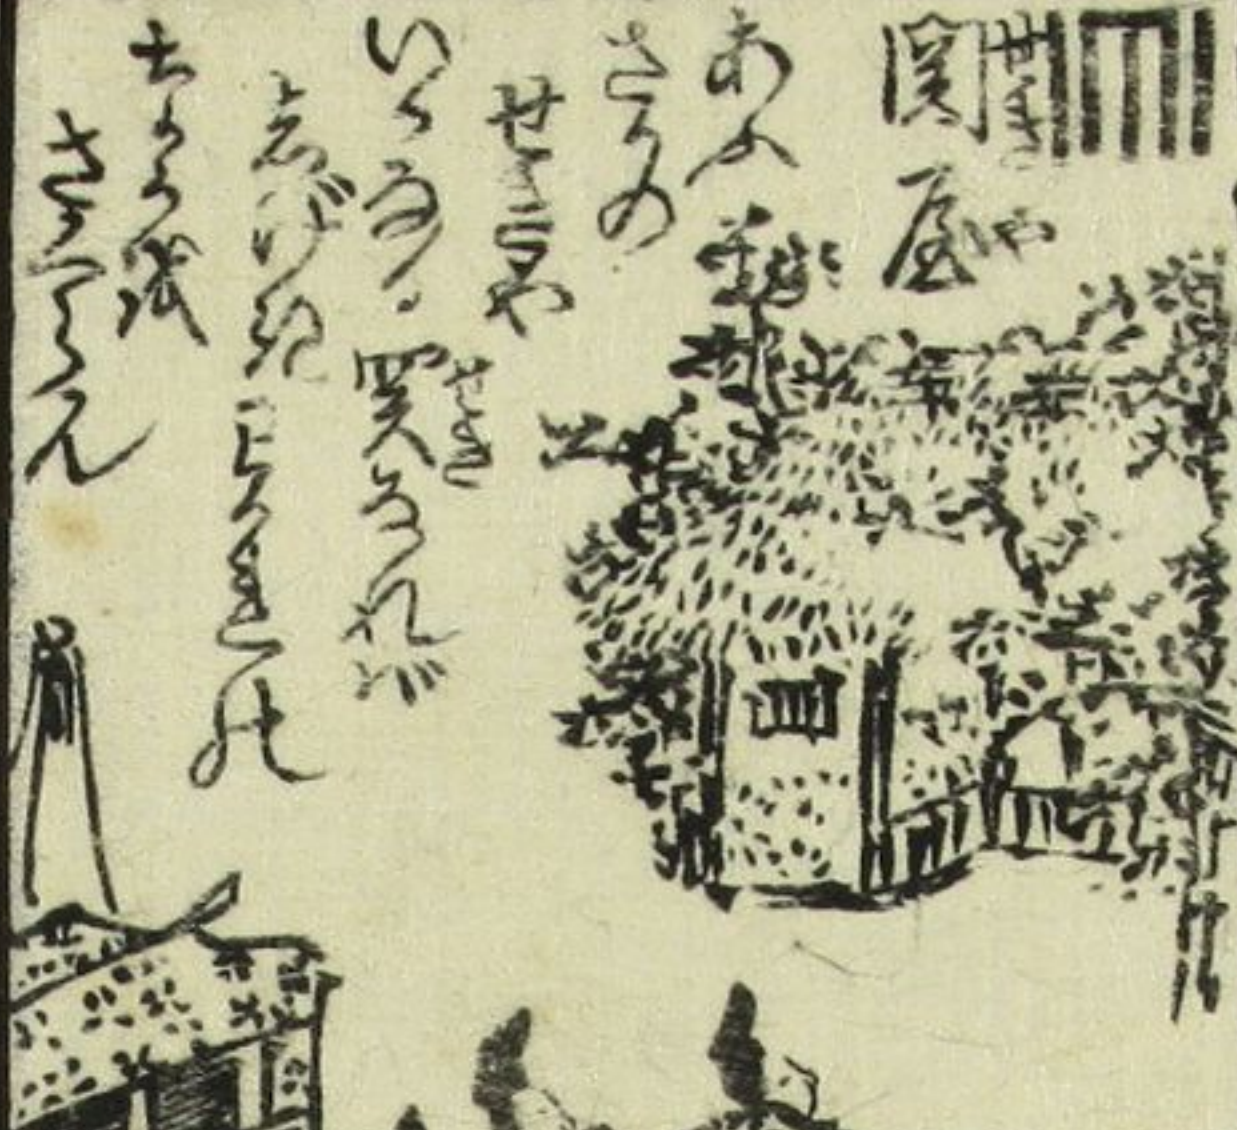 関屋
せきや
あふ
さかの
せきや
いかなる関なれば
せき
しげきなげきの
なかを
わくらん